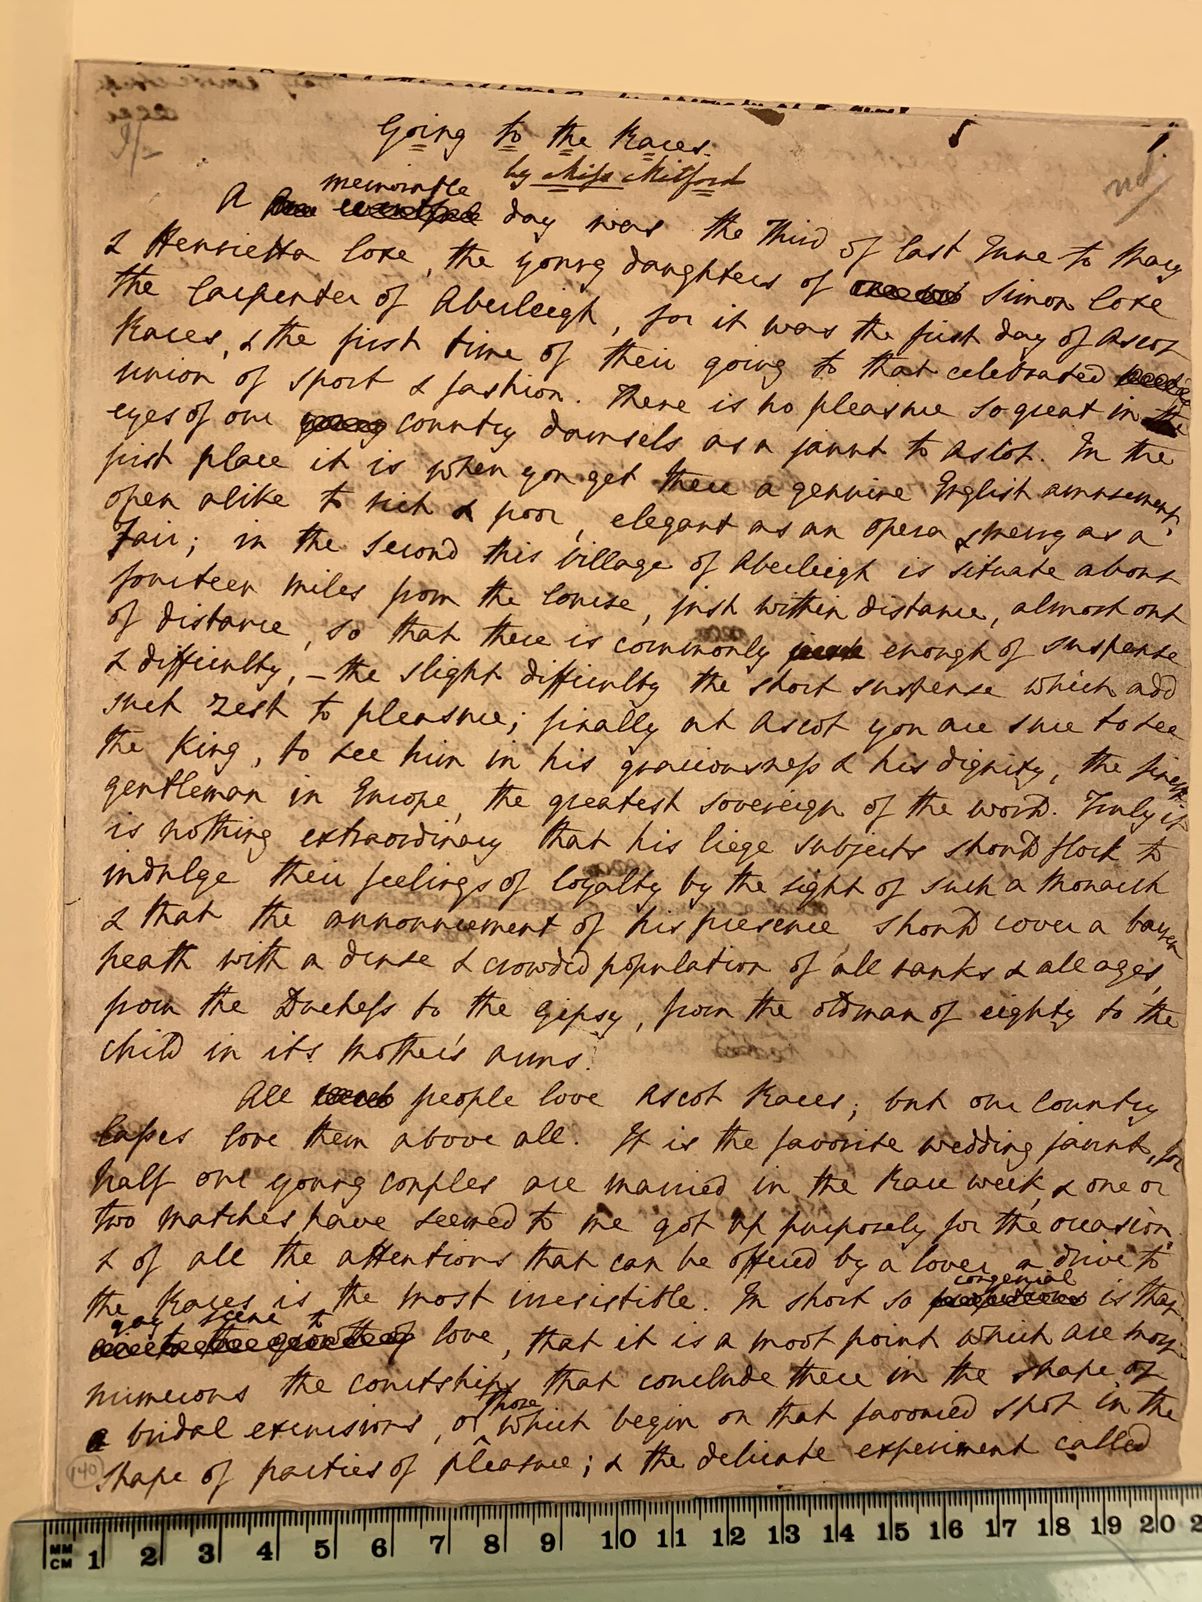 Going to the Races.
by Miss Mitford
memorable
A day was the Third of last June to Mary
& Henrietta Coxe, the young daughters of Simon Coxe
the Carpenter of Aberleigh, for it was the first day of Ascot
Races, & the first time of their going to that celebrated
union of sport & fashion. There is no pleasure so great in the
eyes of our young country damsels as a jaunt to Ascot. In the
first place it is when you get there a genuine English amusement,
open alike to rich & poor, elegant as an opera & merry as a
Fair; in the second this village of Aberleigh is situate about
fourteen miles from the Course, just within distance, almost out
of distance, so that there is commonly just enough of suspense
& difficulty, – the slight difficulty the short suspense which add
such zest to pleasure; finally at Ascot you are sure to see
the King, to see him in his graciousness & his dignity, the finest
gentleman in Europe, the greatest sovereign of the world. Truly it
is nothing extraordinary that his liege subjects should flock to
indulge their feelings of loyalty by the sight of such a Monarch
& that the announcement of his presence should cover a barren
heath with a dense & crowded population of all ranks & all ages,
from the Duchess to the gipsy, from the old man of eighty to the
child in its mother's arms.
All people love Ascot Races; but our Country
Lasses love them above all. It is the favorite wedding jaunt, for
half our young couples are married in the Race week, & one or
two matches have seemed to me got up purposely for the occasion;
& of all the attentions that can be offered by a lover, a drive to
congenial
the Races is the most irresistible. In short so is that
gay scene to
love, that it is a moot point which are most
numerous the courtships that conclude there in the shape of
those
bridal excursions, or which begin on that favoured spot in the
shape of parties of pleasure; & the delicate experiment called
140
MM
CM 1 2 3 4 5 6 7 8 9 10 11 12 13 14 15 16 17 18 19 20